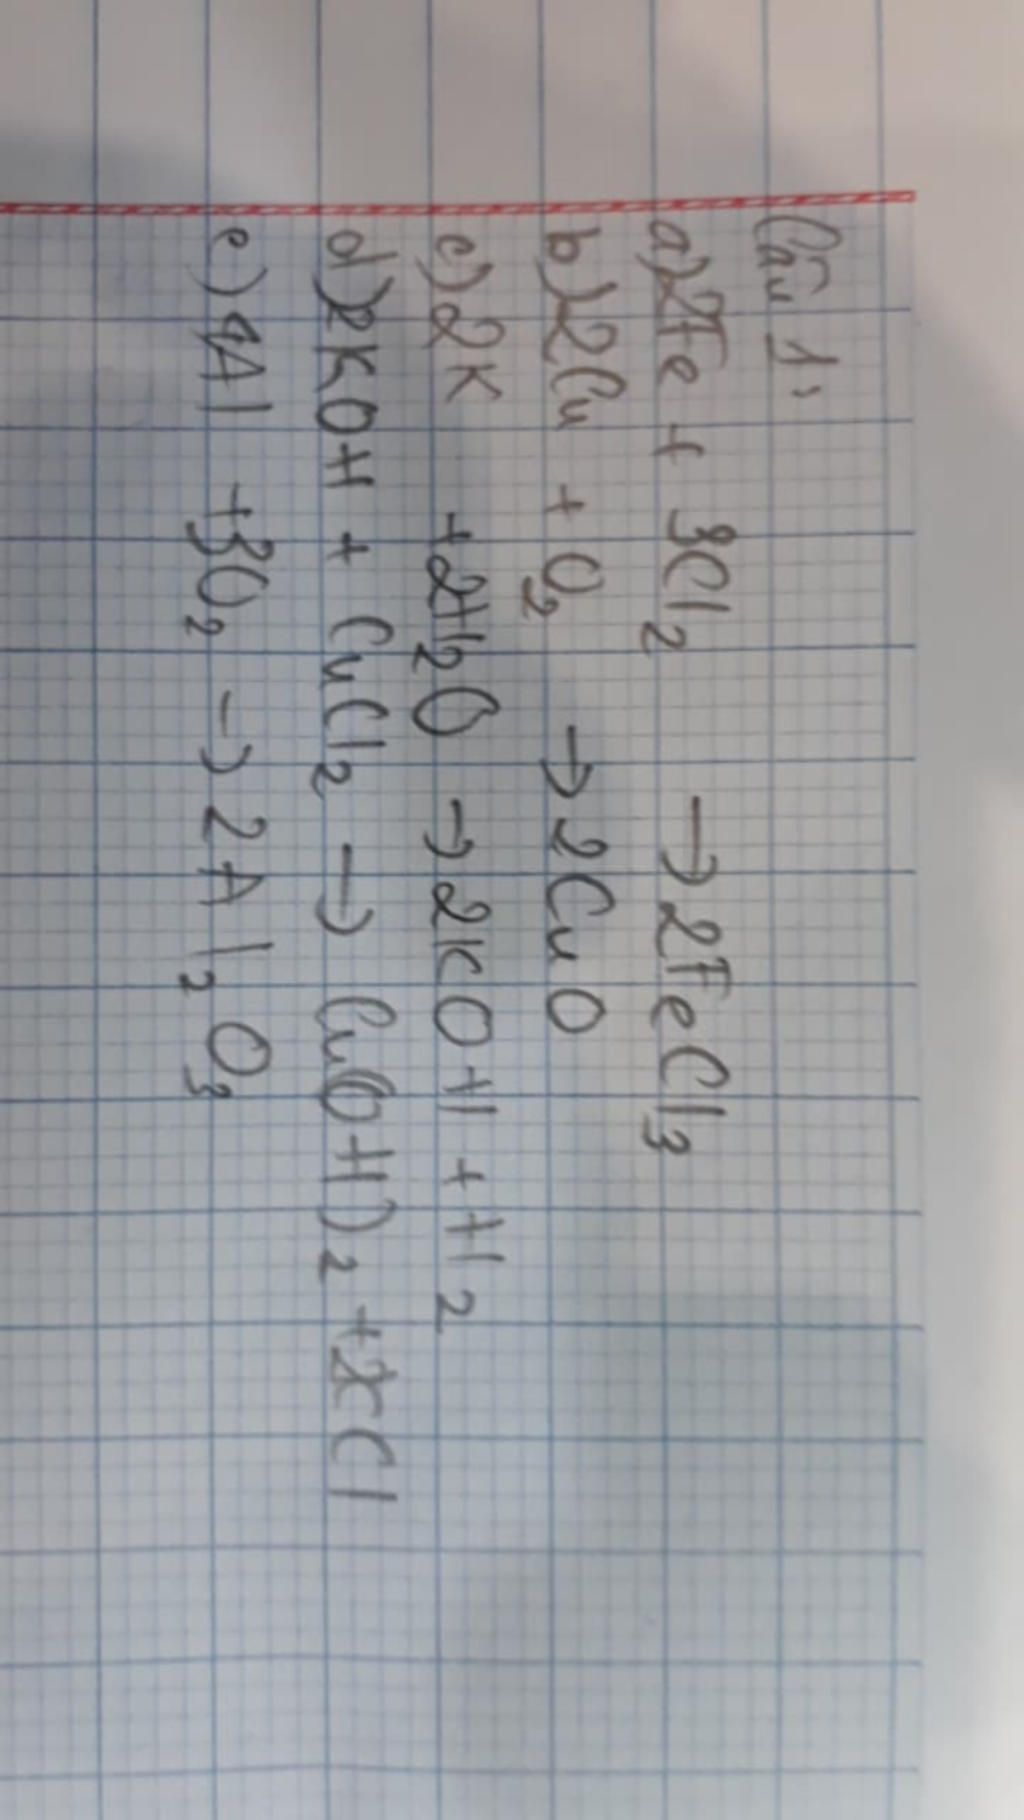 Câu 1:
a) 2Fe + 3Cl₂ → 2FeCl₃
b) 2Cu + O₂ → 2CuO
c) 2K + 2H₂O → 2KOH + H₂
d) 2KOH + CuCl₂ → Cu(OH)₂ +
e) 4Al + 3O₂ → 2Al₂O₃